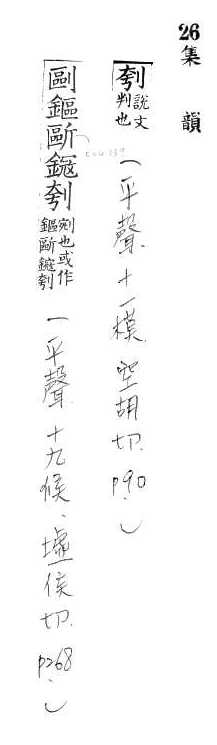 26集韻
刳 說文判也 (平聲.十一模.空胡切.p90.)
剾鏂刳 剜也或作鏂刳 (平聲.十九候、墟侯切.p268.)